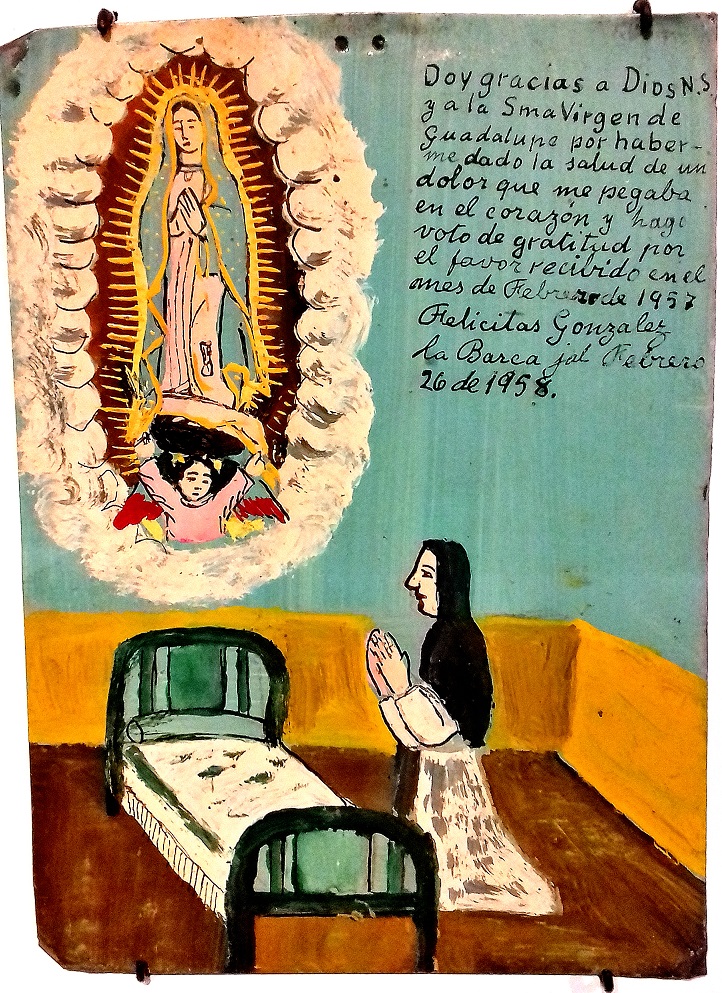 Doy gracias a Dios N.S.
y a la Sma Virgen de
Guadalupe por haber-
me dado la salud de un
dolor que me pegaba
en el corazón y hago
voto de gratitud por
el favor recibido en el
mes de Febrero de 1957
Felicitas Gonzalez
la Barca jal Febrero
26 de 1958.